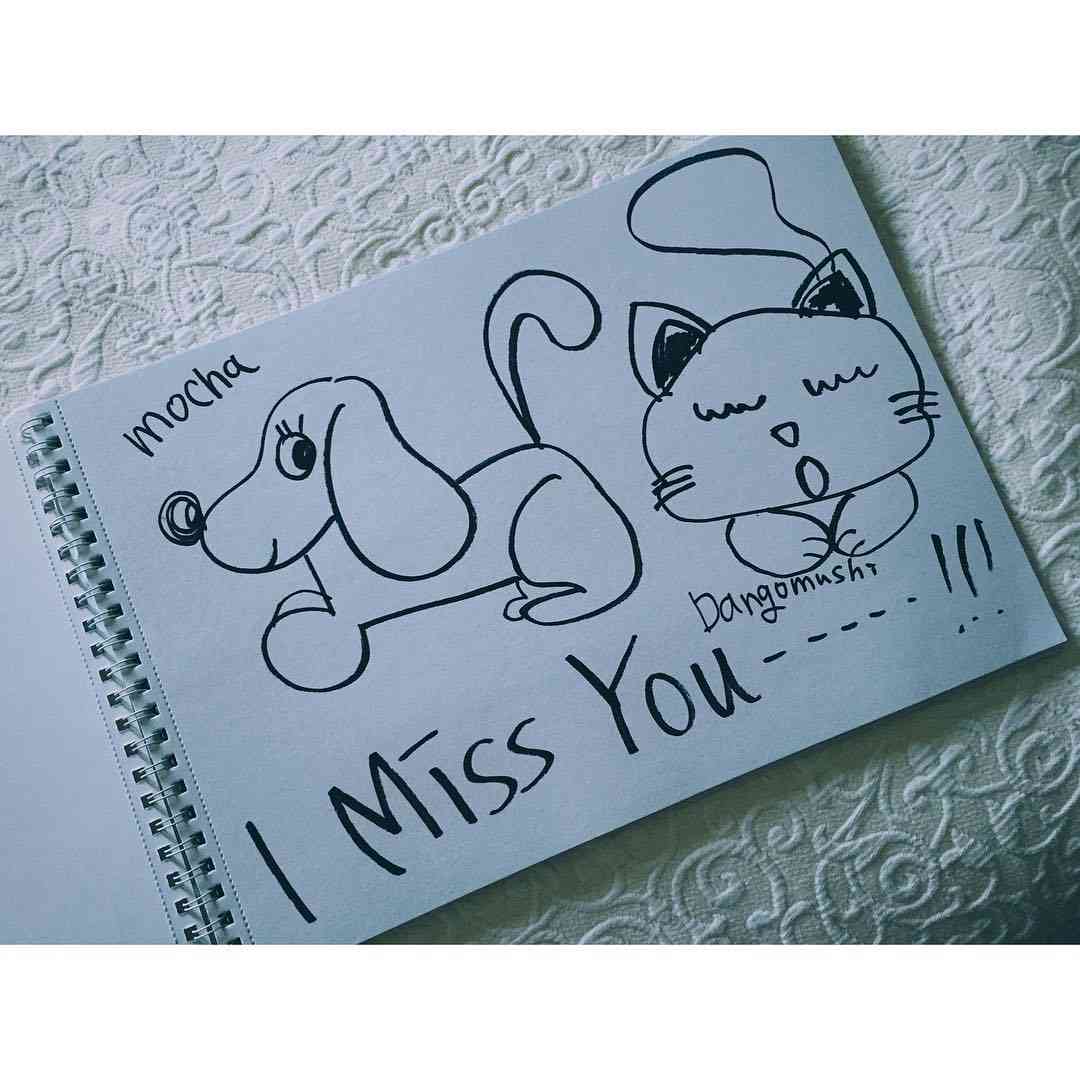 mocha
Dangomushi
I Miss You-----!!!